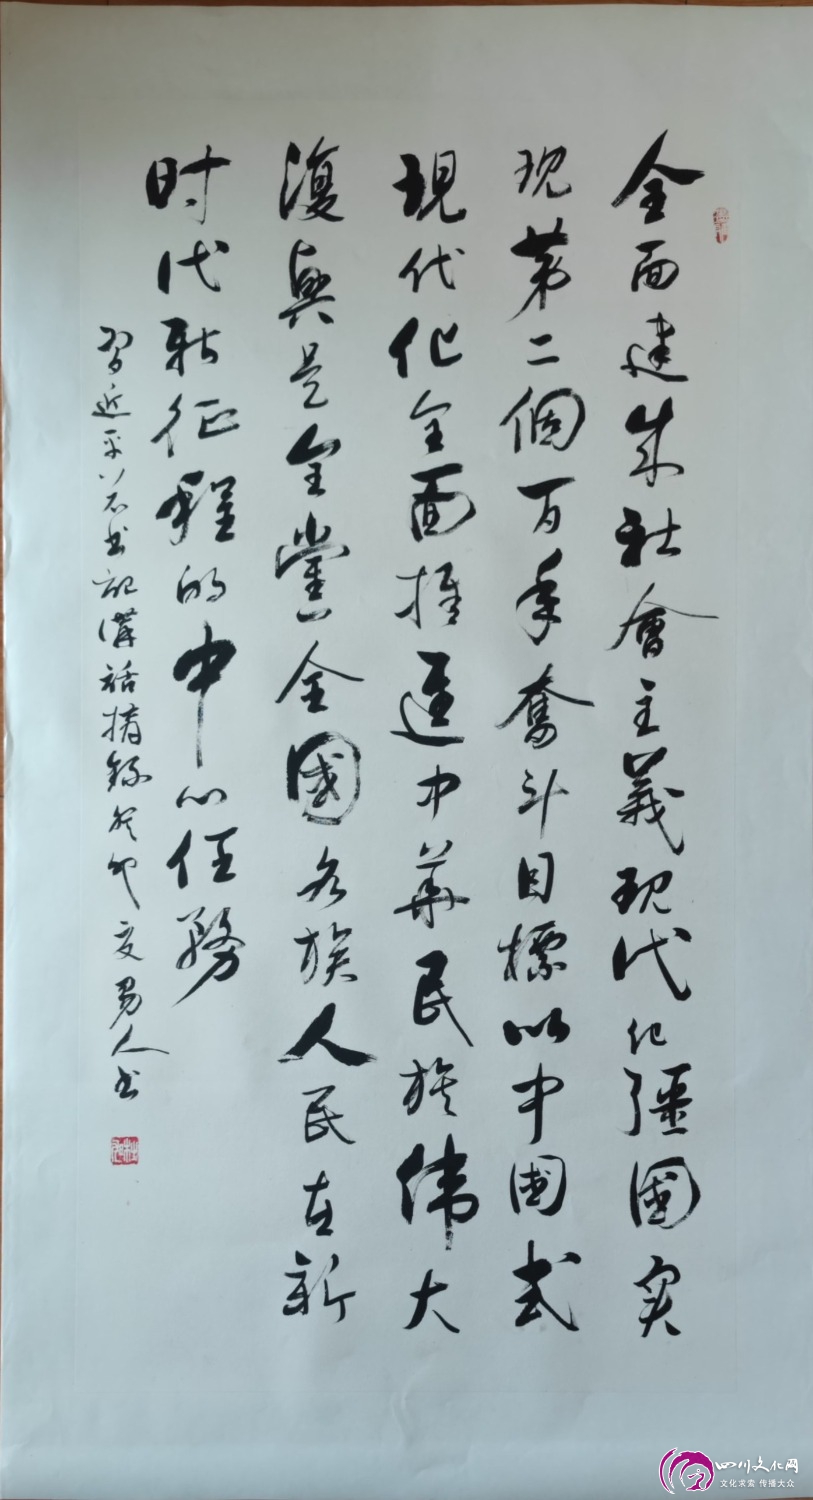 全面建成社會主義现代化彊國实
现第二個百年奮斗目標以中國式
現代化全面推進中華民族偉大
復興是全黨全國各族人民在新
时代新征程的中心任務
習近平总书記講話摘録癸卯人书
四川文化网
文化求索 传播大众